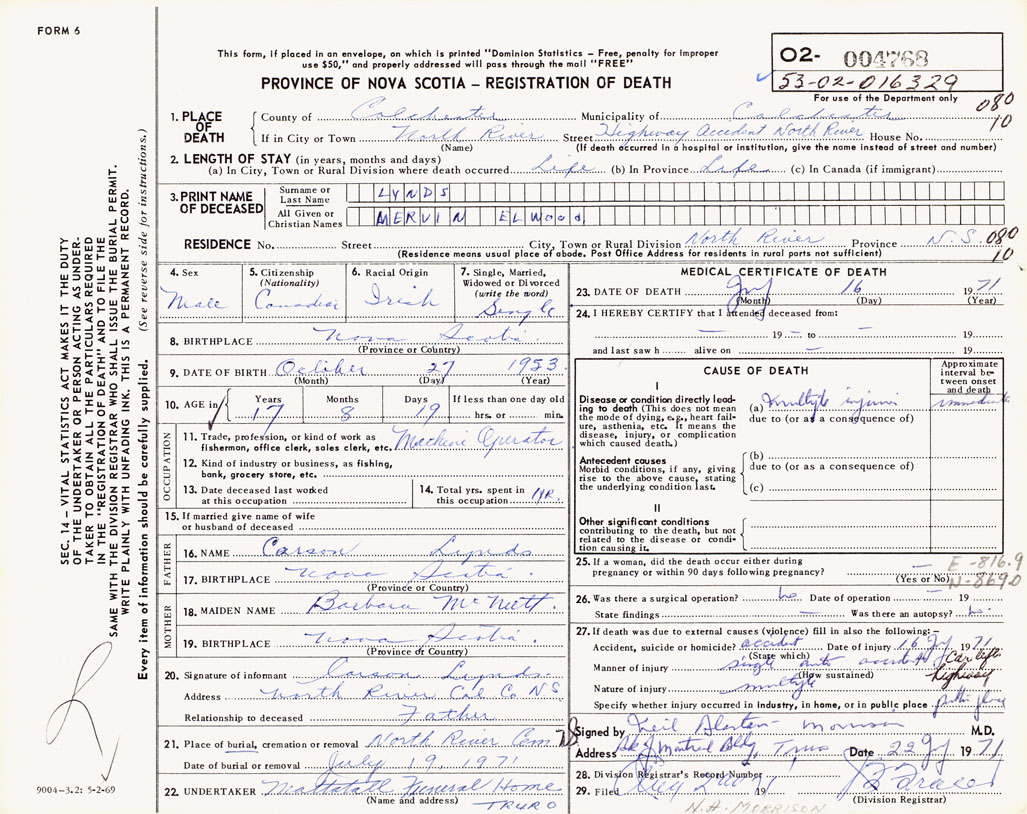 FORM 6
This form, if placed in an envelope, on which is printed "Dominion Statistics – Free, penalty for improper
use $50," and properly addressed will pass through the mail "FREE"
PROVINCE OF NOVA SCOTIA – REGISTRATION OF DEATH
02- 004768
53-02-016329
For use of the Department only
080
10
1. PLACE OF DEATH
County of Colchester Municipality of Colchester
If in City or Town North River Street Highway Accident North River House No.
(Name) (If death occurred in a hospital or institution, give the name instead of street and number)
2. LENGTH OF STAY (in years, months and days)
(a) In City, Town or Rural Division where death occurred Life (b) In Province Life (c) In Canada (if immigrant)
3. PRINT NAME OF DECEASED
Surname or Last Name LYNDS
All Given or Christian Names MERVIN ELWOOD
RESIDENCE No. Street City, Town or Rural Division North River Province N.S. 080
(Residence means usual place of abode. Post Office Address for residents in rural parts not sufficient) 10
4. Sex
Male
5. Citizenship
(Nationality)
Canadian
6. Racial Origin
Irish
7. Single, Married,
Widowed or Divorced
(write the word)
Single
8. BIRTHPLACE Nova Scotia
(Province or Country)
9. DATE OF BIRTH October 27 1953
(Month) (Day) (Year)
10. AGE in Years Months Days If less than one day old
17 8 19 hrs. or min.
OCCUPATION
11. Trade, profession, or kind of work as
fisherman, office clerk, sales clerk, etc. Machine Operator
12. Kind of industry or business, as fishing,
bank, grocery store, etc.
13. Date deceased last worked
at this occupation
14. Total yrs. spent in
this occupation 1yr.
15. If married give name of wife
or husband of deceased
FATHER
16. NAME Carson Lynds
17. BIRTHPLACE Nova Scotia
(Province or Country)
MOTHER
18. MAIDEN NAME Barbara McNutt
19. BIRTHPLACE Nova Scotia
(Province or Country)
20. Signature of informant Carson Lynds
Address North River Col Co NS
Relationship to deceased Father
21. Place of burial, cremation or removal North River Cem
Date of burial or removal July 19 1971
22. UNDERTAKER Mattatall Funeral Home
(Name and address) TRURO
MEDICAL CERTIFICATE OF DEATH
23. DATE OF DEATH July 16 1971
(Month) (Day) (Year)
24. I HEREBY CERTIFY that I attended deceased from:
– 19 – to – 19
and last saw h alive on – 19
CAUSE OF DEATH
Approximate
interval be-
tween onset
and death
I
Disease or condition directly lead-
ing to death (This does not mean
the mode of dying, e.g., heart fail-
ure, asthenia, etc. It means the
disease, injury, or complication
which caused death.)
(a) multiple injuries immediate
due to (or as a consequence of)
Antecedent causes
Morbid conditions, if any, giving
rise to the above cause, stating
the underlying condition last.
(b)
due to (or as a consequence of)
(c)
II
Other significant conditions
contributing to the death, but not
related to the disease or condi-
tion causing it.
25. If a woman, did the death occur either during
pregnancy or within 90 days following pregnancy? –
(Yes or No)
E-816.9
N-869.0
26. Was there a surgical operation? no Date of operation – 19
State findings – Was there an autopsy? no.
27. If death was due to external causes (violence) fill in also the following:–
Accident, suicide or homicide? accident Date of injury 16 July 1971
(State which)
Manner of injury single auto accident Car left
(How sustained) highway
Nature of injury multiple
Specify whether injury occurred in industry, in home, or in public place public place
Signed by Neil Morrison M.D.
Address Truro Date 22 July 1971
28. Division Registrar's Record Number
29. Filed 19
(Division Registrar)
N.A. MORRISON
SEC. 14 – VITAL STATISTICS ACT MAKES IT THE DUTY
OF THE UNDERTAKER OR PERSON ACTING AS UNDER-
TAKER TO OBTAIN ALL THE PARTICULARS REQUIRED
IN THE "REGISTRATION OF DEATH" AND TO FILE THE
SAME WITH THE DIVISION REGISTRAR WHO SHALL ISSUE THE BURIAL PERMIT.
WRITE PLAINLY WITH UNFADING INK. THIS IS A PERMANENT RECORD.
Every item of information should be carefully supplied. (See reverse side for instructions.)
9004–3.2: 5-2-69